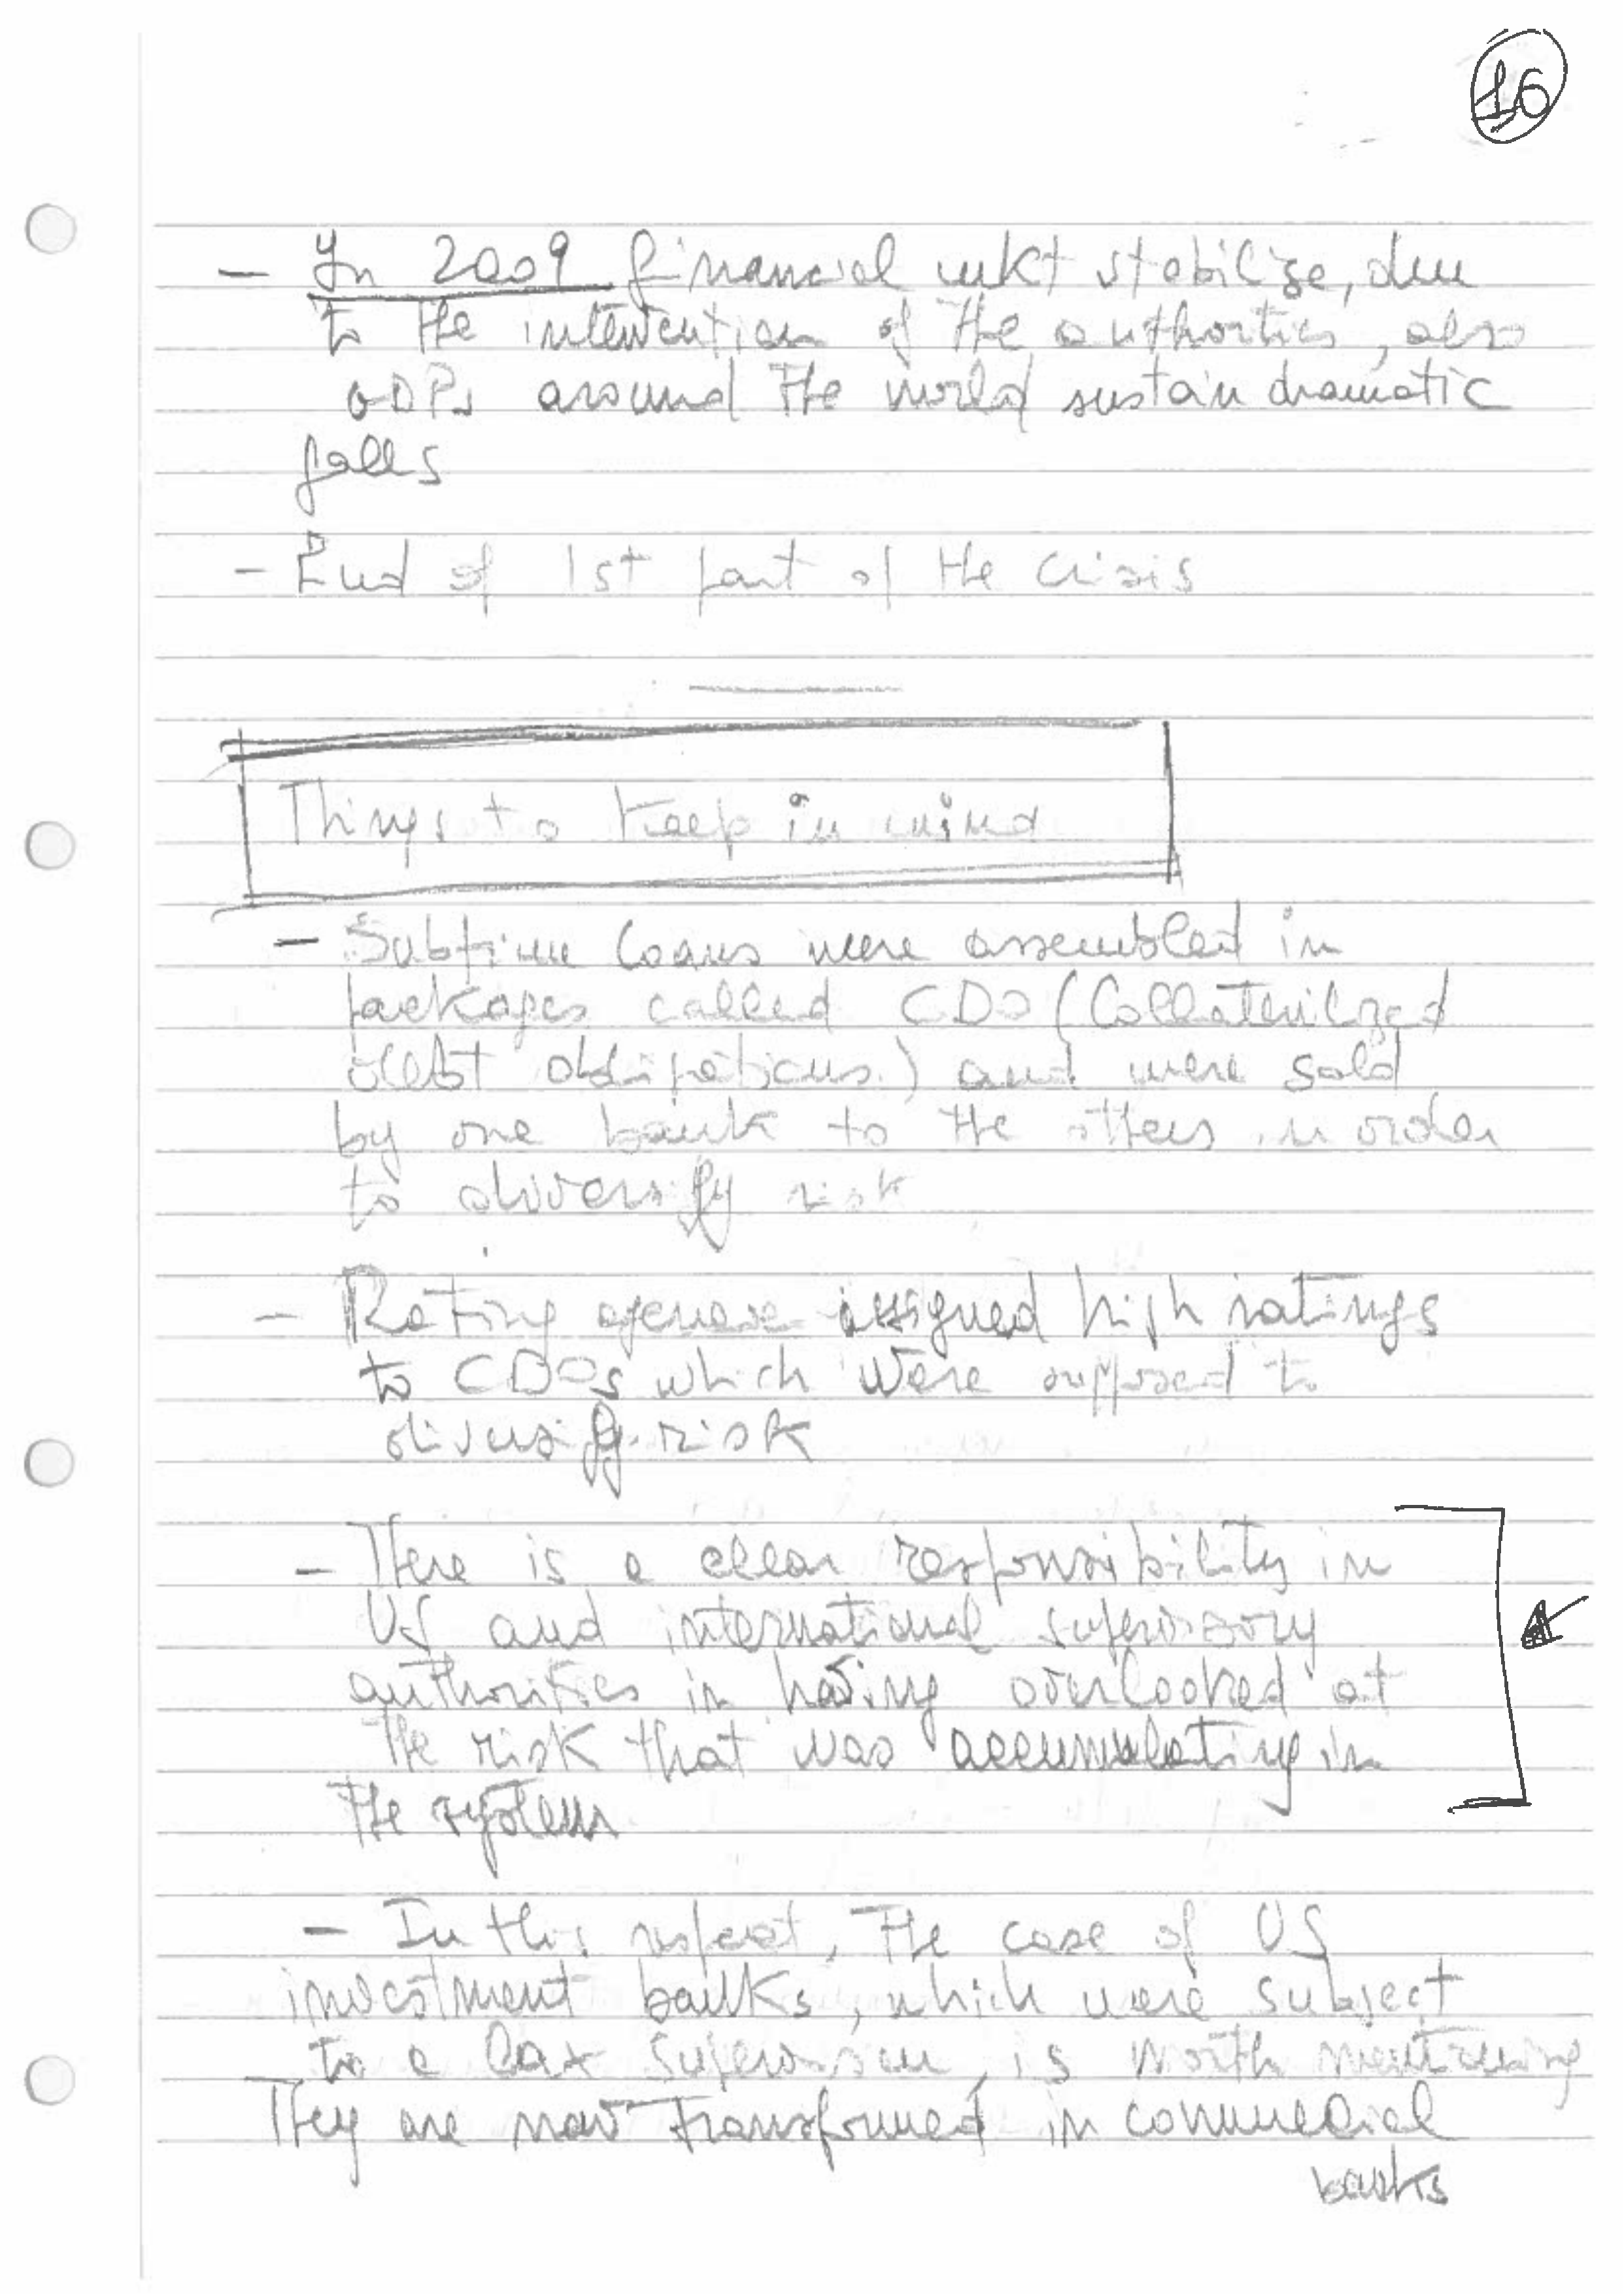 16
- In 2009 financial mkt stabilize, due
to the intervention of the authorities, also
GDPs around the world sustain dramatic
falls
- End of 1st part of the crisis
Things to keep in mind
- Subprime loans were assembled in
packages called CDO (Collaterilized
debt obligations) and were sold
by one bank to the others in order
to diversify risk
- Rating agencies assigned high ratings
to CDOs which were supposed to
diversify risk
- There is a clear responsibility in
US and international supervisory
authorities in having overlooked at
the risk that was accumulating in
the system
- In this respect, the case of US
investment banks, which were subject
to a lax supervision, is worth mentioning
They are now transformed in commercial
banks